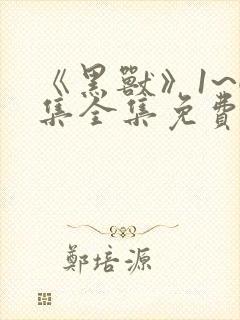 《黑獸》1~
集全集免費
鄭培源